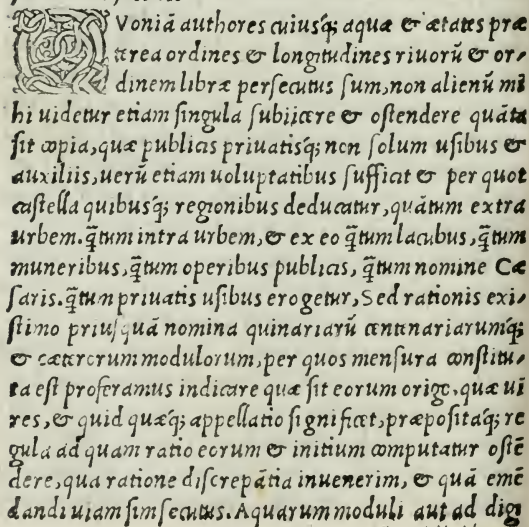 QVoniã authores cuiusq́; aquæ & ætates præ
terea ordines & longitudines riuorũ & or-
dinem libræ persecutus sum, non alienũ mi
hi uidetur etiam singula subijcere & ostendere quãta
sit copia, quæ publicis priuatisq́; non solum usibus &
auxiliis, uerũ etiam uoluptatibus sufficit & per quot
castella quibusq́; regionibus deducatur, quãtum extra
urbem. q̃tum intra urbem, & ex eo q̃tum lacubus, q̃tum
muneribus, q̃tum operibus publicis, q̃tum nomine Cæ
saris. q̃tum priuatis usibus erogetur, Sed rationis exi-
stimo priusquã nomina quinariarũ centenariarumq́;
& cæterorum modulorum, per quos mensura constitu-
ta est proferamus indicare quæ sit eorum origo, quæ ui
res, & quid quæq́; appellatio significet, præpositaq́; re
gula ad quam ratio eorum & initium computatur ostẽ
dere, qua ratione discrepãtia inuenerim, & quã emẽ
dandi uiam sim secutus. Aquarum moduli aut ad digi